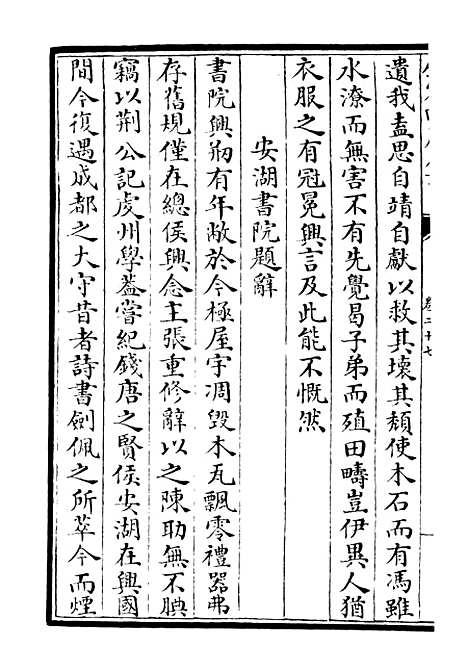 遺我盍思自靖自獻以救其壞其頹使木石而有馮雖
水潦而無害不有先覺曷子弟而殖田疇豈伊異人猶
衣服之有冠冕興言及此能不慨然
安湖書院題辭
書院興剏有年敝於今極屋宇凋毀木瓦飄零禮器弗
存舊規僅在總侯興念主張重修辭以之陳助無不腆
竊以荆公記虔州學葢嘗紀錢唐之賢侯安湖在興國
間今復遇成都之大守昔者詩書劍佩之所萃今而煙
卷二十七